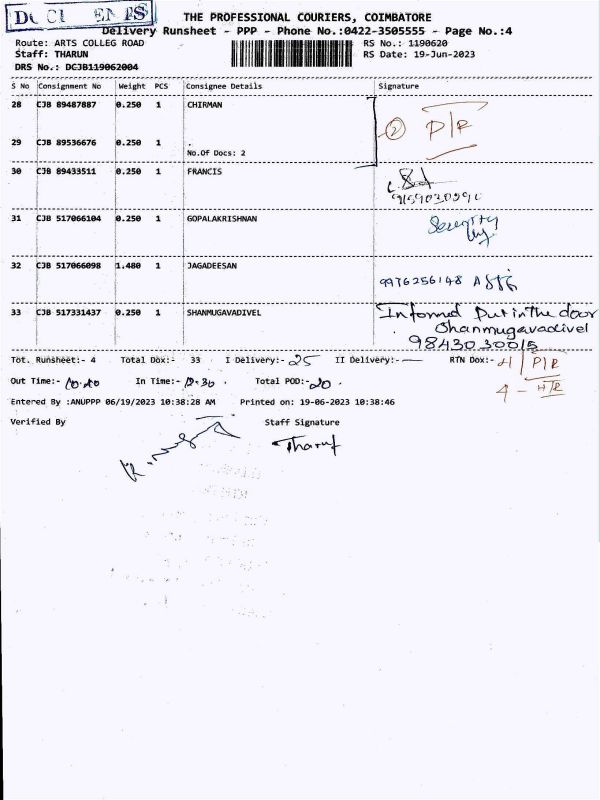 THE PROFESSIONAL COURIERS, COIMBATORE
Delivery Runsheet - PPP - Phone No.:0422-3505555 - Page No.:4
Route: ARTS COLLEG ROAD RS No.: 1190620
Staff: THARUN RS Date: 19-Jun-2023
DRS No.: DCJB119062004
S No Consignment No Weight PCS Consignee Details Signature
28 CJB 89487887 0.250 1 CHIRMAN
2 P/R
29 CJB 89536676 0.250 1 .
No.Of Docs: 2
30 CJB 89433511 0.250 1 FRANCIS
31 CJB 517066104 0.250 1 GOPALAKRISHNAN Security
32 CJB 517066098 1.480 1 JAGADEESAN
9976256148
33 CJB 517331437 0.250 1 SHANMUGAVADIVEL Informed Put in the door
Shanmugavadivel
98430 30015
Tot. Runsheet:- 4 Total Dox:- 33 I Delivery:- 25 II Delivery:- — RTN Dox:- 4 | P/R
Out Time:- 10.40 In Time:- Total POD:- 20 . 4 - H/R
Entered By :ANUPPP 06/19/2023 10:38:28 AM Printed on: 19-06-2023 10:38:46
Verified By Staff Signature
Tharun